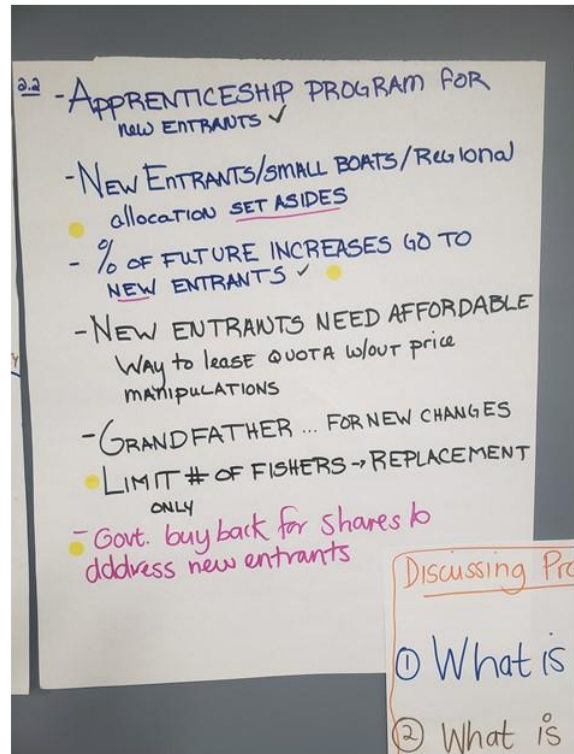 2.2 - APPRENTICESHIP PROGRAM FOR
new ENTRANTS ✓
- NEW ENTRANTS/SMALL BOATS/REGIONAL
allocation SET ASIDES
- % OF FUTURE INCREASES GO TO
NEW ENTRANTS ✓
- NEW ENTRANTS NEED AFFORDABLE
WAY to LEASE QUOTA W/OUT price
MANIPULATIONS
- GRANDFATHER ... FOR NEW CHANGES
LIMIT # OF FISHERS → REPLACEMENT
ONLY
- Govt. buy back for shares to
dddress new entrants
Discussing Pro
① What is
② What is